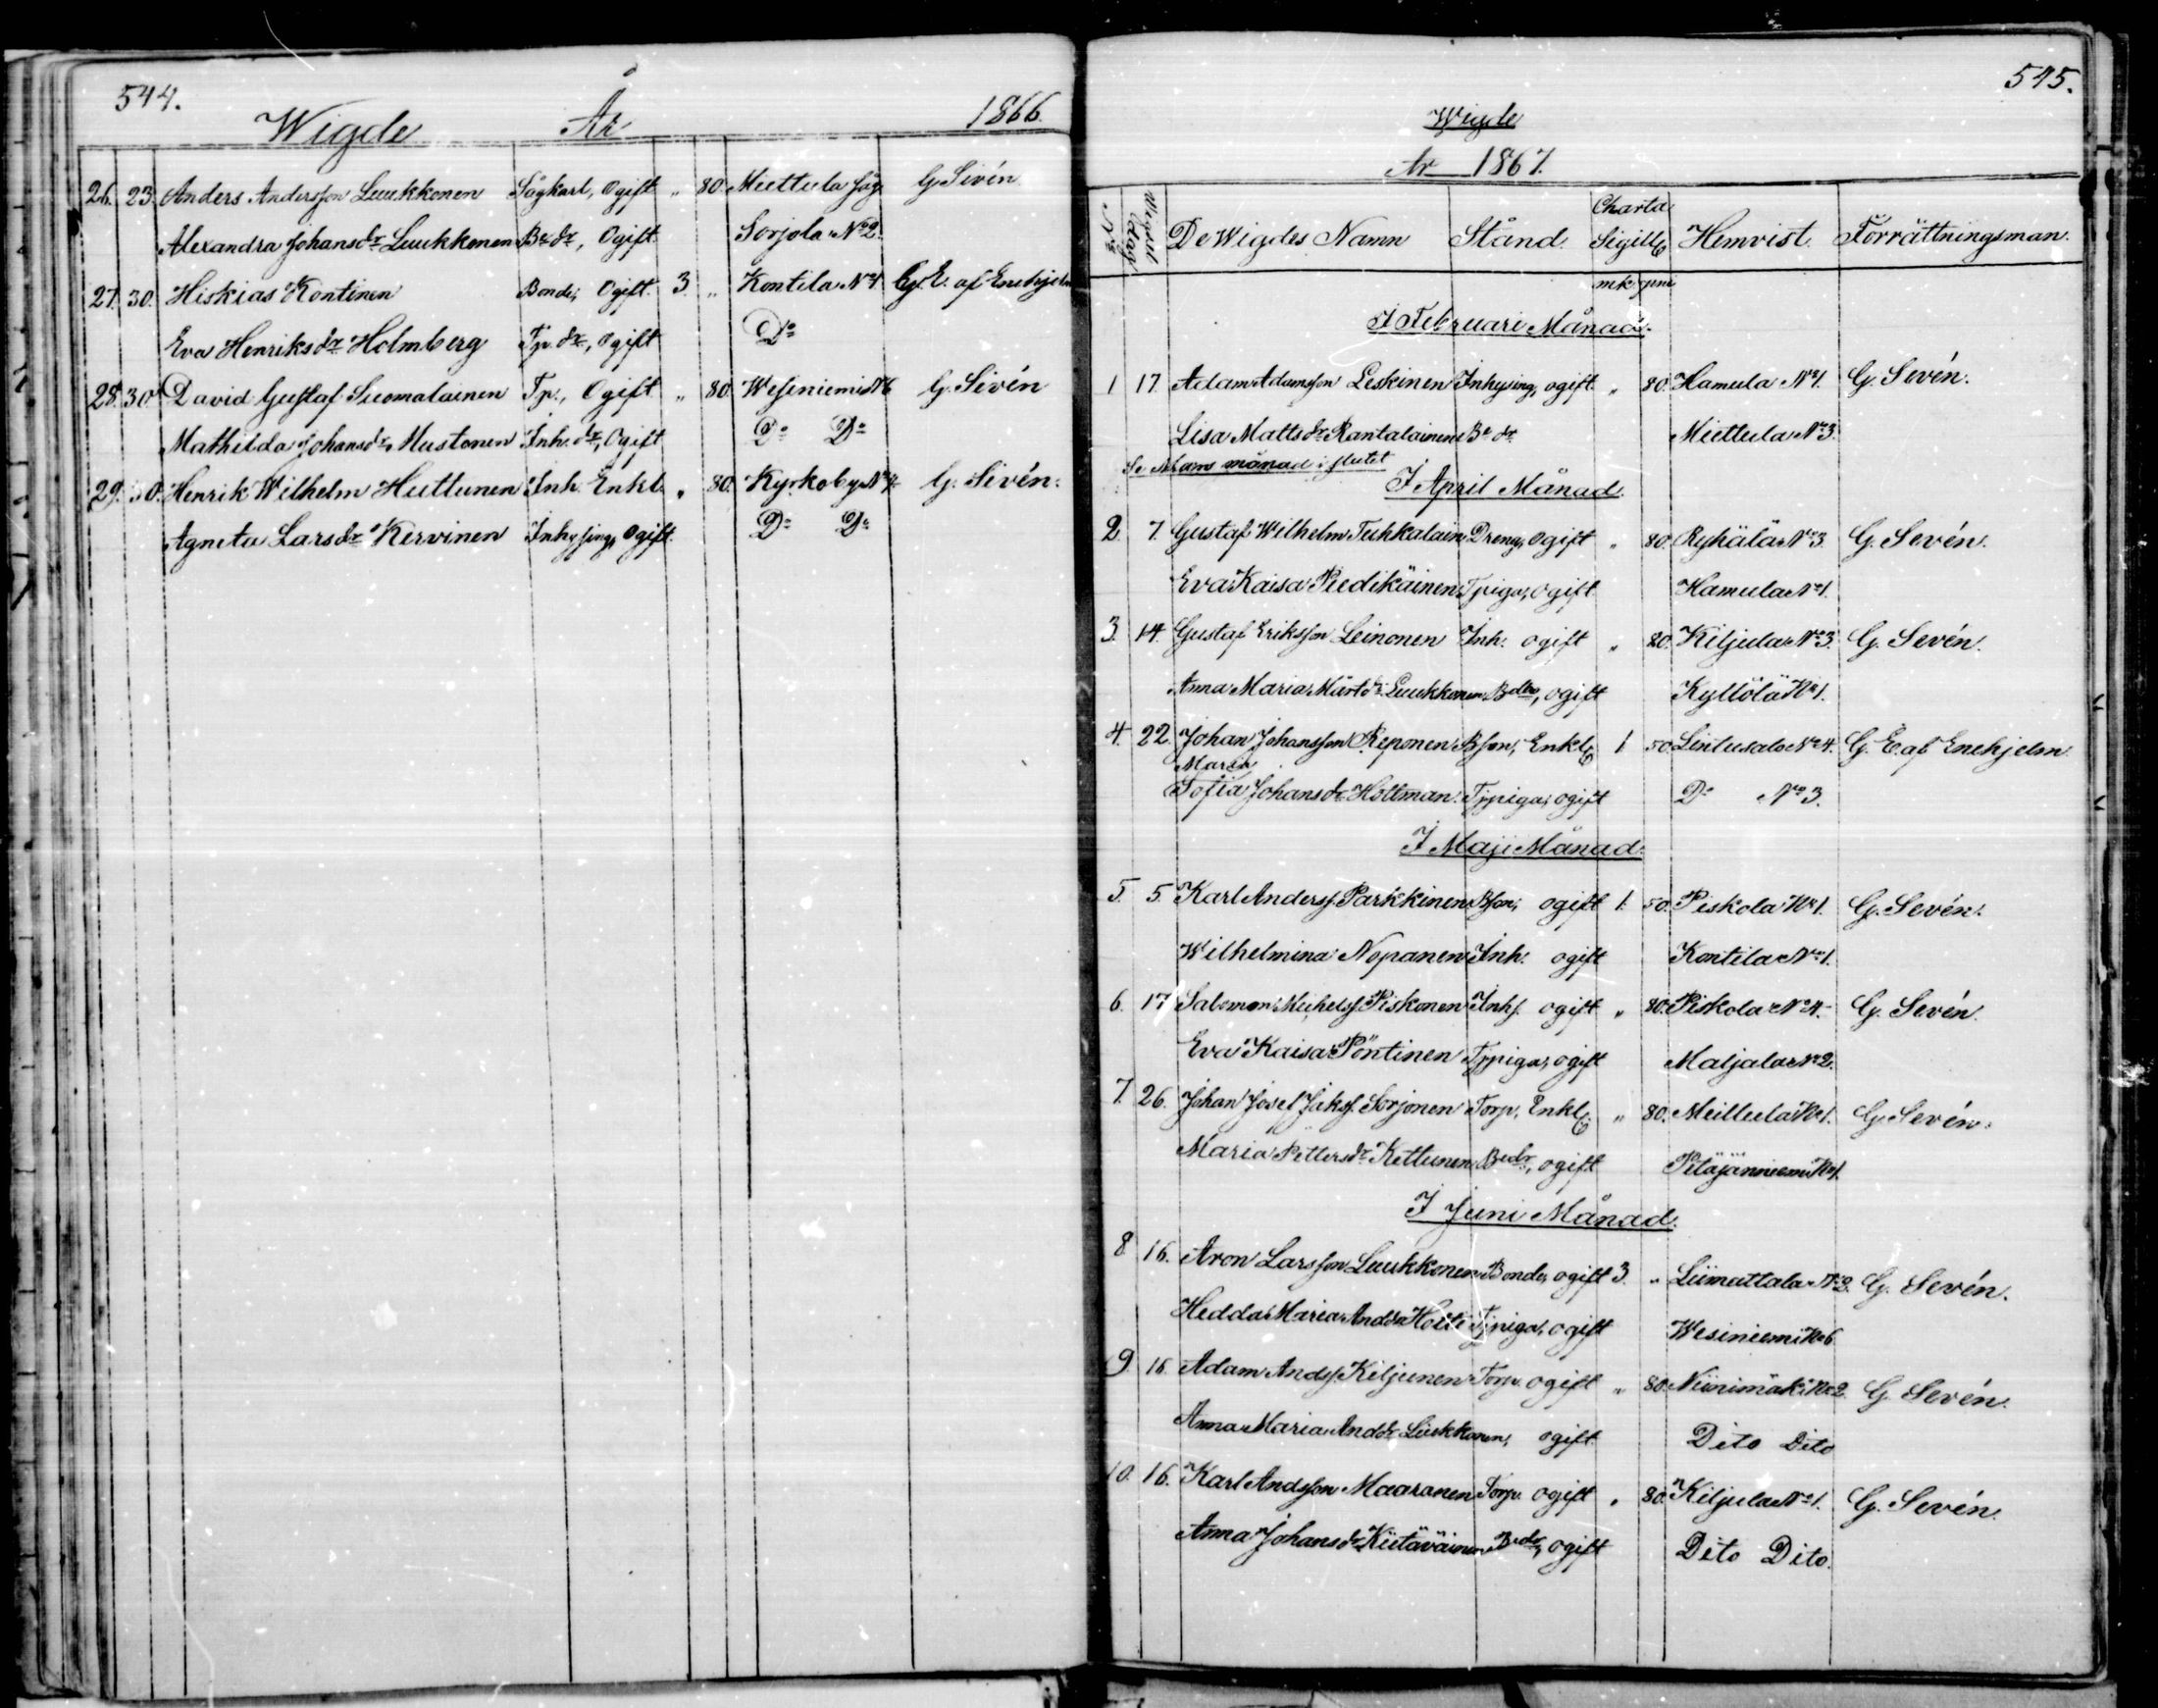 544.
Wigde År 1866.
26. 23. Anders Andersson Luukkonen Sågkarl, Ogift „ 80. Miettula såg G. Sivén
Alexandra Johansdr Luukkonen Bedr, Ogift Sorjola No 2.
27. 30. Hiskias Kontinen Bonde, Ogift. 3. „ Kontila No 1 G. E. af Enehjelm
Eva Henriksdr Holmberg Tp. dr, Ogift Do
28. 30. David Gustaf Suomalainen Tp., Ogift „ 80. Wesiniemi No 6 G. Sivén
Mathilda Johansdr Mustonen Inh. dr, Ogift Do Do
29. 30. Henrik Wilhelm Huttunen Inh. Enkl. „ 80. Kyrkoby No 4 G. Sivén.
Agneta Larsdr Kervinen Inhysing, Ogift. Do Do
545.
Wigde
År 1867.
No Wigsel dag De Wigdes Namn Stånd Charta Sigill. Hemvist. Förrättningsman.
mk. pni
I Februari Månad.
1 17. Adam Adamsson Leskinen Inhysing, ogift. „ 80. Hamula No 1. G. Sevén.
Lisa Mattsdr Rantalainen Be dr Miettula No 3.
Se månad i slutet
I April Månad.
2 7. Gustaf Wilhelm Tuhkalain. Dreng, ogift „ 80. Ryhälä No 3. G. Sevén.
Eva Kaisa Piedikäinen Tpiga, ogift Hamula No 1.
3. 14. Gustaf Eriksson Leinonen Inh. ogift „ 80. Kiljula No 3. G. Sevén.
Anna Maria Mårtdr Luukkonen Bdtr, ogift Kyllölä No 1.
4. 22. Johan Johansson Reponen Bson, Enkl. 1 50. Lintusalo No 4. G. E. af Enehjelm.
Maria
Sofia Johansdr Holtman. Tjpiga, ogift Do No 3.
I Maji Månad.
5. 5. Karl Anderss. Parkkinen Bson, ogift 1. 50. Piskola No 1. G. Sevén.
Wilhelmina Nopanen Inh. ogift Kontila No 1.
6. 17 Salomon Michelss. Piskonen Inhs. ogift „ 80. Piskola No 4. G. Sevén.
Eva Kaisa Pöntinen Tjpiga, ogift Maljala No 2.
7. 26. Johan Josef Jakss. Sorjonen Torp. Enkl. „ 80. Meittula No 1. G. Sevén.
Maria Pettersdr Kettunen Bedr, ogift Petäjänniemi No 1.
I Juni Månad.
8 16. Aron Larsson Luukkonen Bonde, ogift 3. „ Liimattala No 3. G. Sevén.
Hedda Maria Anddr Tjpiga, ogift Wesiniemi No 6
9. 16. Adam Andss. Kiljunen Torp. ogift „ 80. Niinimäki No 2. G. Sevén.
Anna Maria Anddr Luukkonen, ogift Dito Dito
10. 16. Karl Andsson Maaranen Torp. ogift „ 80. Kiljula No 1. G. Sevén.
Anna Johansdr Kiitäväinen Bedr, ogift Dito Dito.